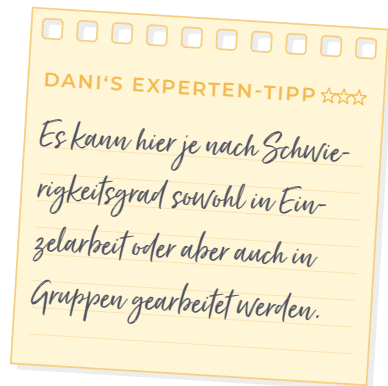 DANI'S EXPERTEN-TIPP
Es kann hier je nach Schwie-
rigkeitsgrad sowohl in Ein-
zelarbeit oder aber auch in
Gruppen gearbeitet werden.